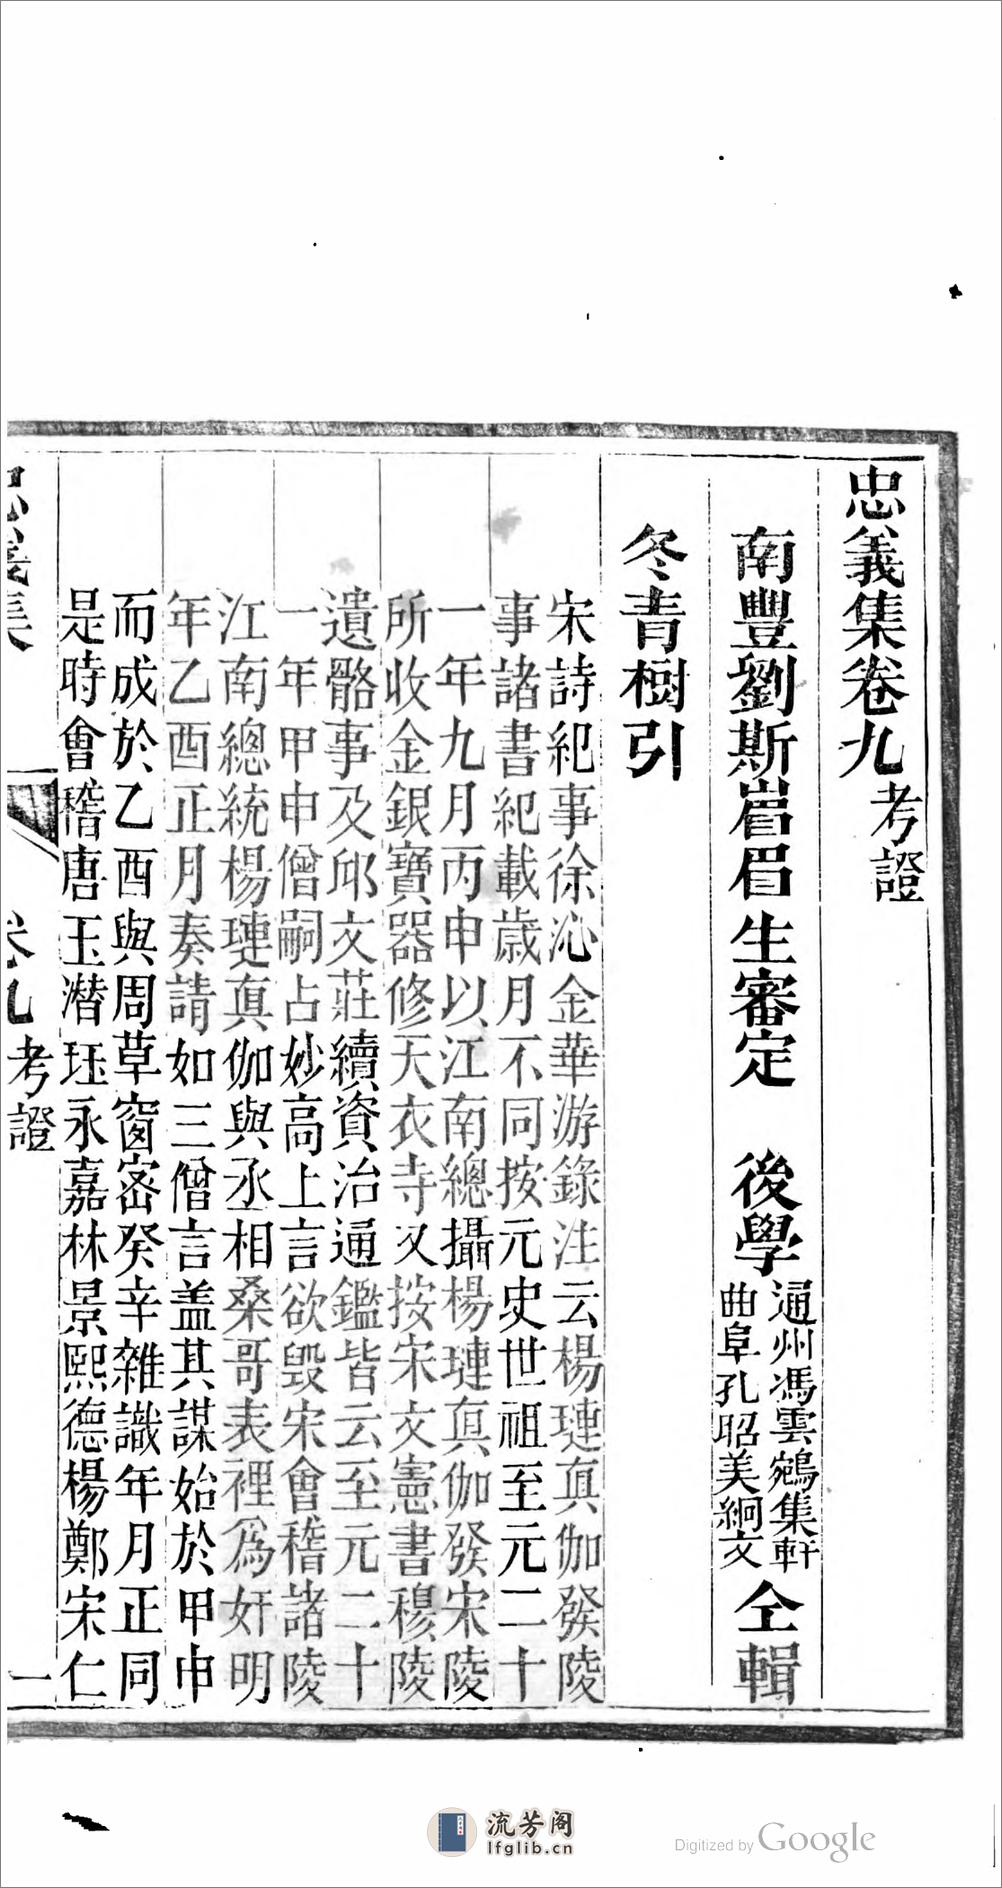 忠義集卷九考證
南豐劉斯嵋眉生審定 後學
通州馮雲鵷集軒
曲阜孔昭美絅文
仝輯
冬青樹引
宋詩紀事徐沁金華游錄注云楊璉真伽發陵
事諸書紀載歲月不同按元史世祖至元二十
一年九月丙申以江南總攝楊璉真伽發宋陵
所收金銀寶器修天衣寺又按宋文憲書穆陵
遺骼事及邱文莊續資治通鑑皆云至元二十
一年甲申僧嗣占妙高上言欲毀宋會稽諸陵
江南總統楊璉真伽與丞相桑哥表裡為奸明
年乙酉正月奏請如三僧言蓋其謀始於甲申
而成於乙酉與周草窗密癸辛雜識年月正同
是時會稽唐玉潛珏永嘉林景熙德楊鄭宋仁
忠義集 卷九考證 一
流芳阁
lfglib.cn
Digitized by Google